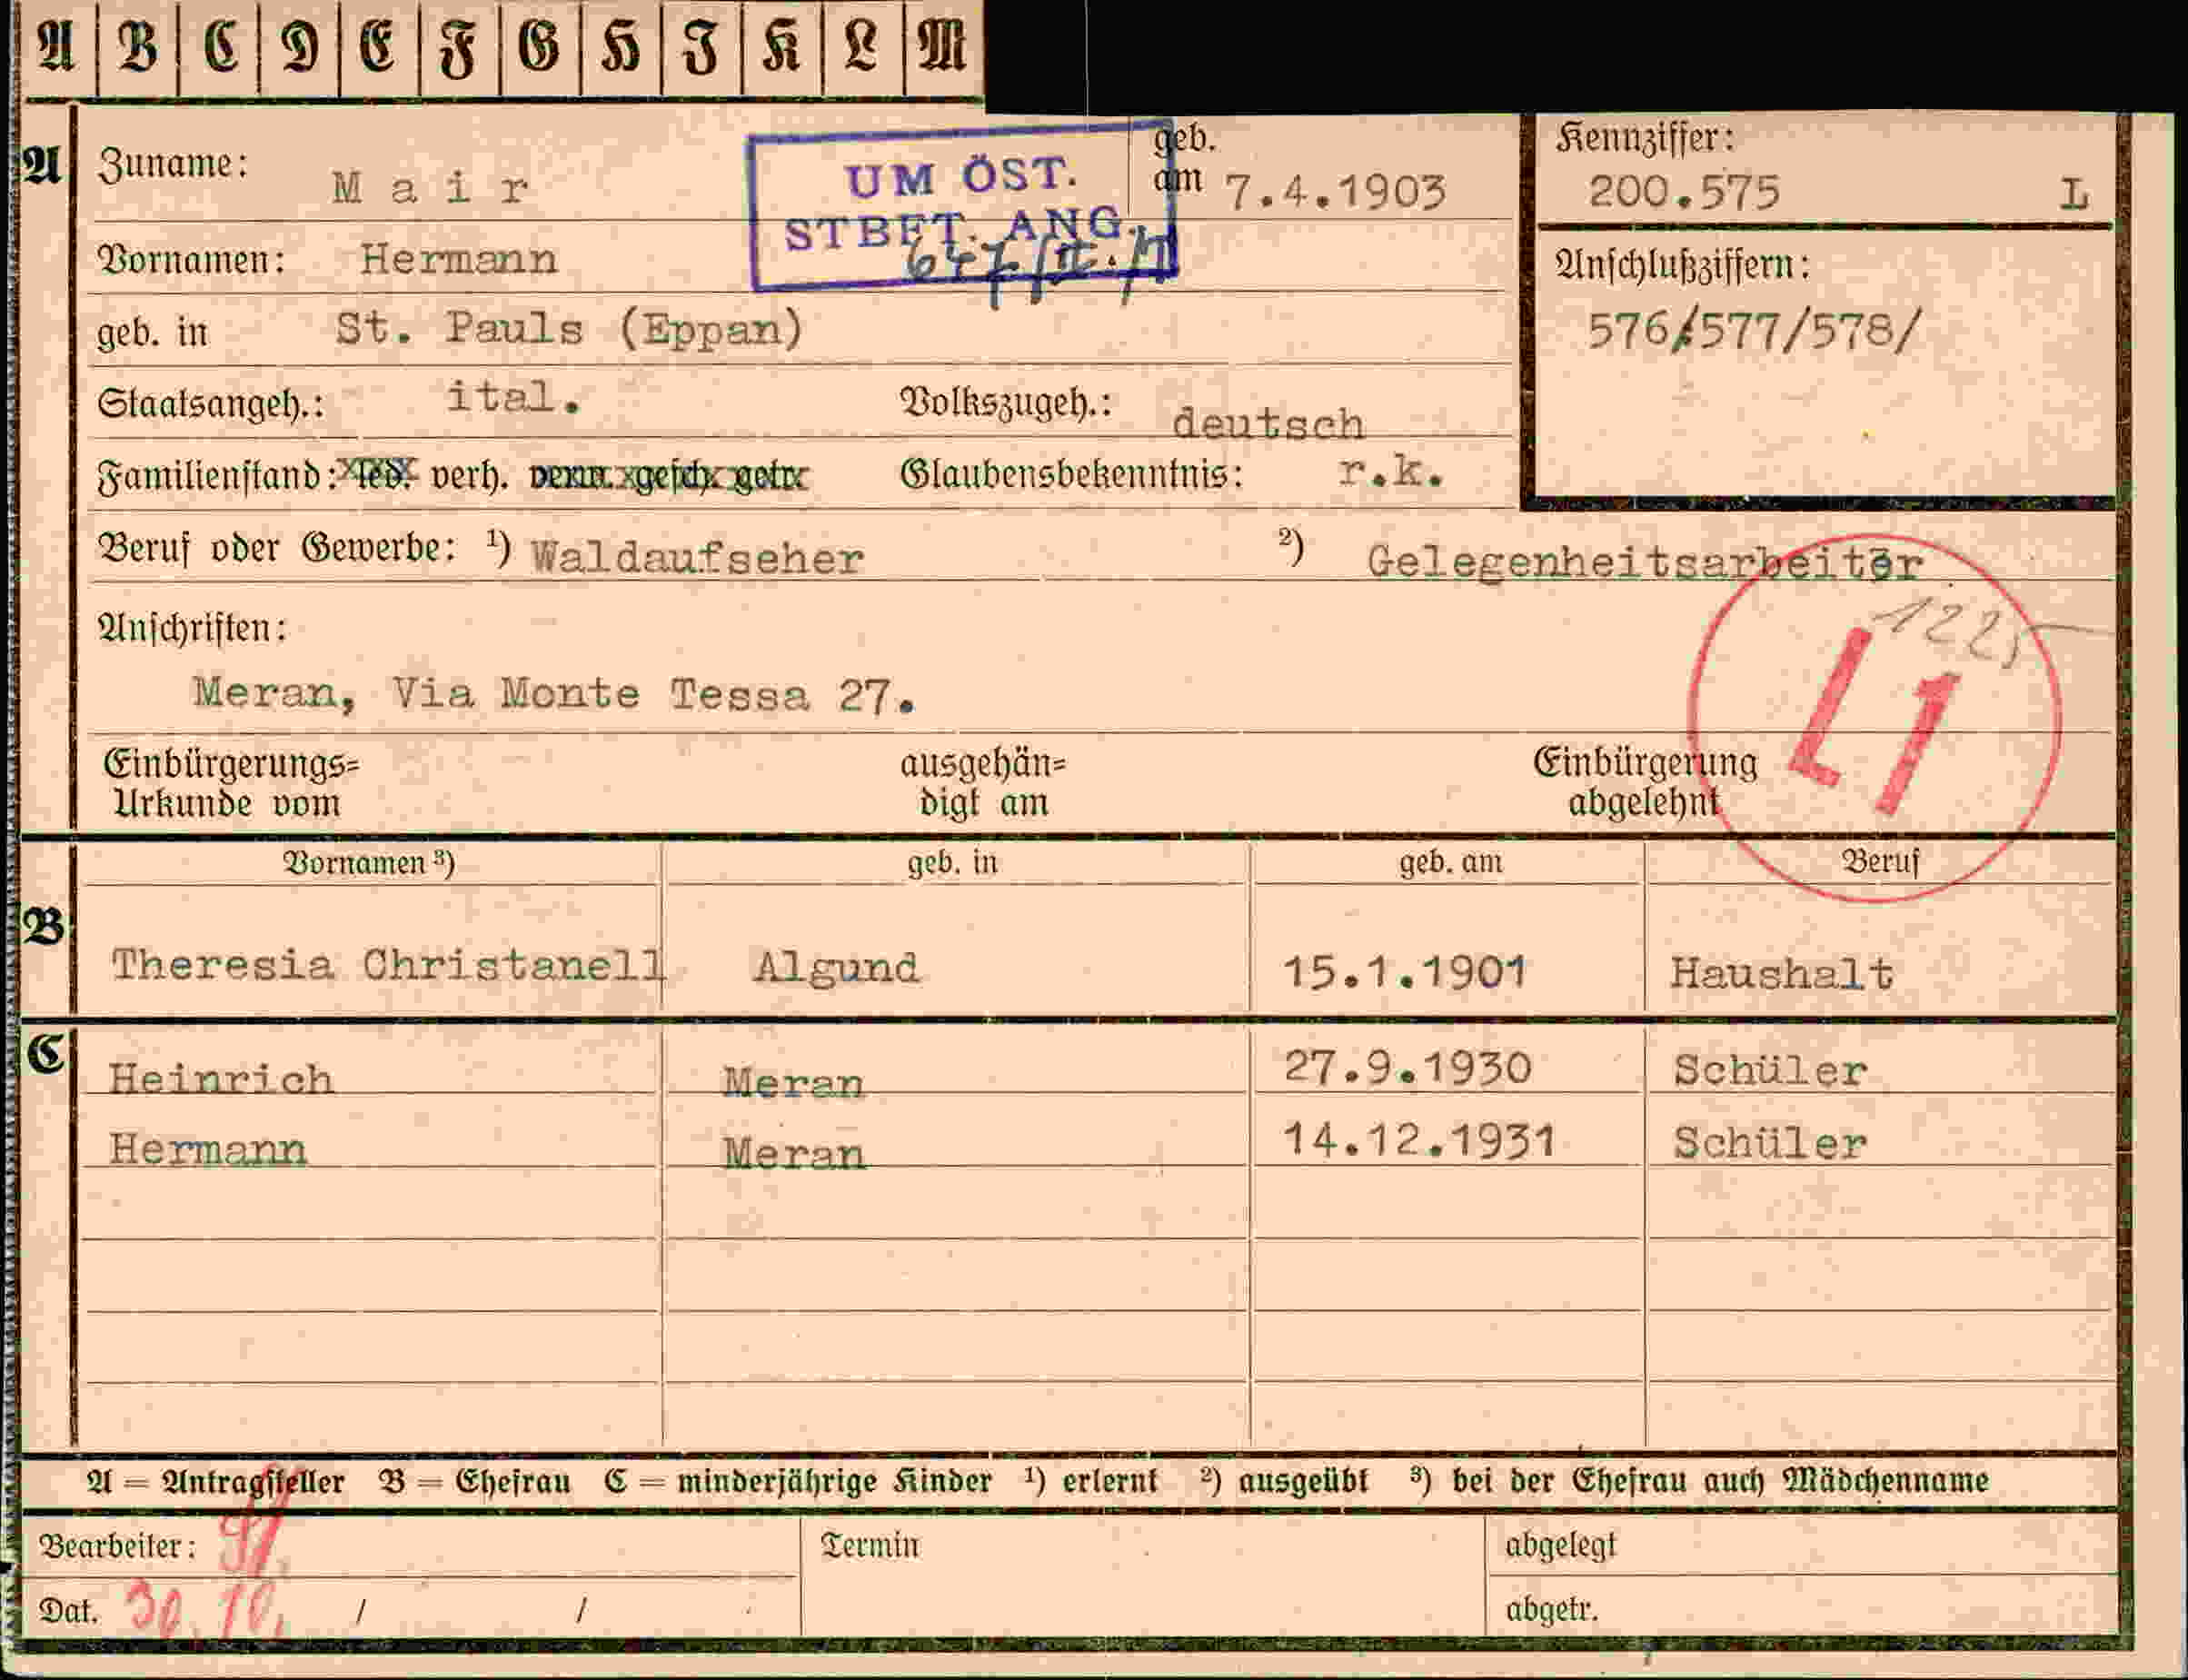 A B C D E F G H I K L M
A Zuname: Mair
UM ÖST.
STBET. ANG.
geb.
am 7.4.1903
Kennziffer:
200.575 L
Vornamen: Hermann
Anschlußziffern:
576/577/578/
geb. in St. Pauls (Eppan)
Staatsangeh.: ital. Volkszugeh.: deutsch
Familienstand: led. verh. verw. gesch. getr. Glaubensbekenntnis: r.k.
Beruf oder Gewerbe: ¹) Waldaufseher ²) Gelegenheitsarbeiter
1225
Anschriften:
L1
Meran, Via Monte Tessa 27.
Einbürgerungs= ausgehän= Einbürgerung
Urkunde vom digt am abgelehnt
Vornamen ³) geb. in geb. am Beruf
B Theresia Christanell Algund 15.1.1901 Haushalt
C Heinrich Meran 27.9.1930 Schüler
Hermann Meran 14.12.1931 Schüler
A = Antragsteller B = Ehefrau C = minderjährige Kinder ¹) erlernt ²) ausgeübt ³) bei der Ehefrau auch Mädchenname
Bearbeiter: Termin abgelegt
Dat. 30.10. / / abgetr.